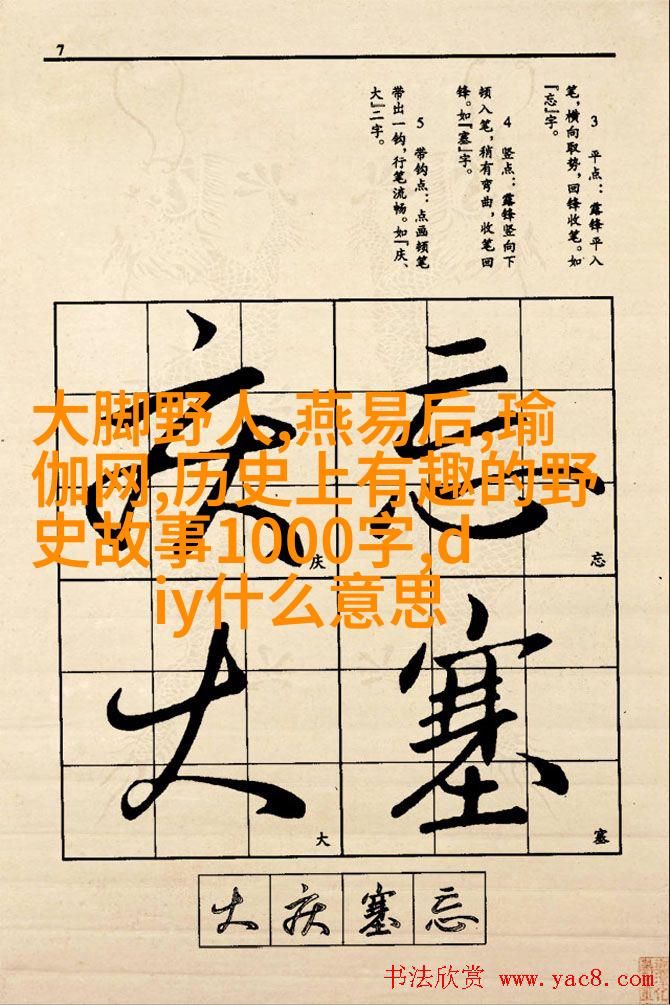 7
3 平点：露锋平入
笔，横向取势，回锋收笔。如
『忘』字。
4 竖点：露锋竖向下
顿入笔，稍有弯曲，收笔回
锋。如『塞』字。
5 带钩点：点画顿笔
带出一钩，行笔流畅。如『庆、
大』二字。
大脚野人,燕易后,瑜
伽网,历史上有趣的野
史故事1000字,d
iy什么意思
庆 忘
庆 忘
大 塞
大 塞
大 庆 塞 忘
书法欣赏 www.yac8.com